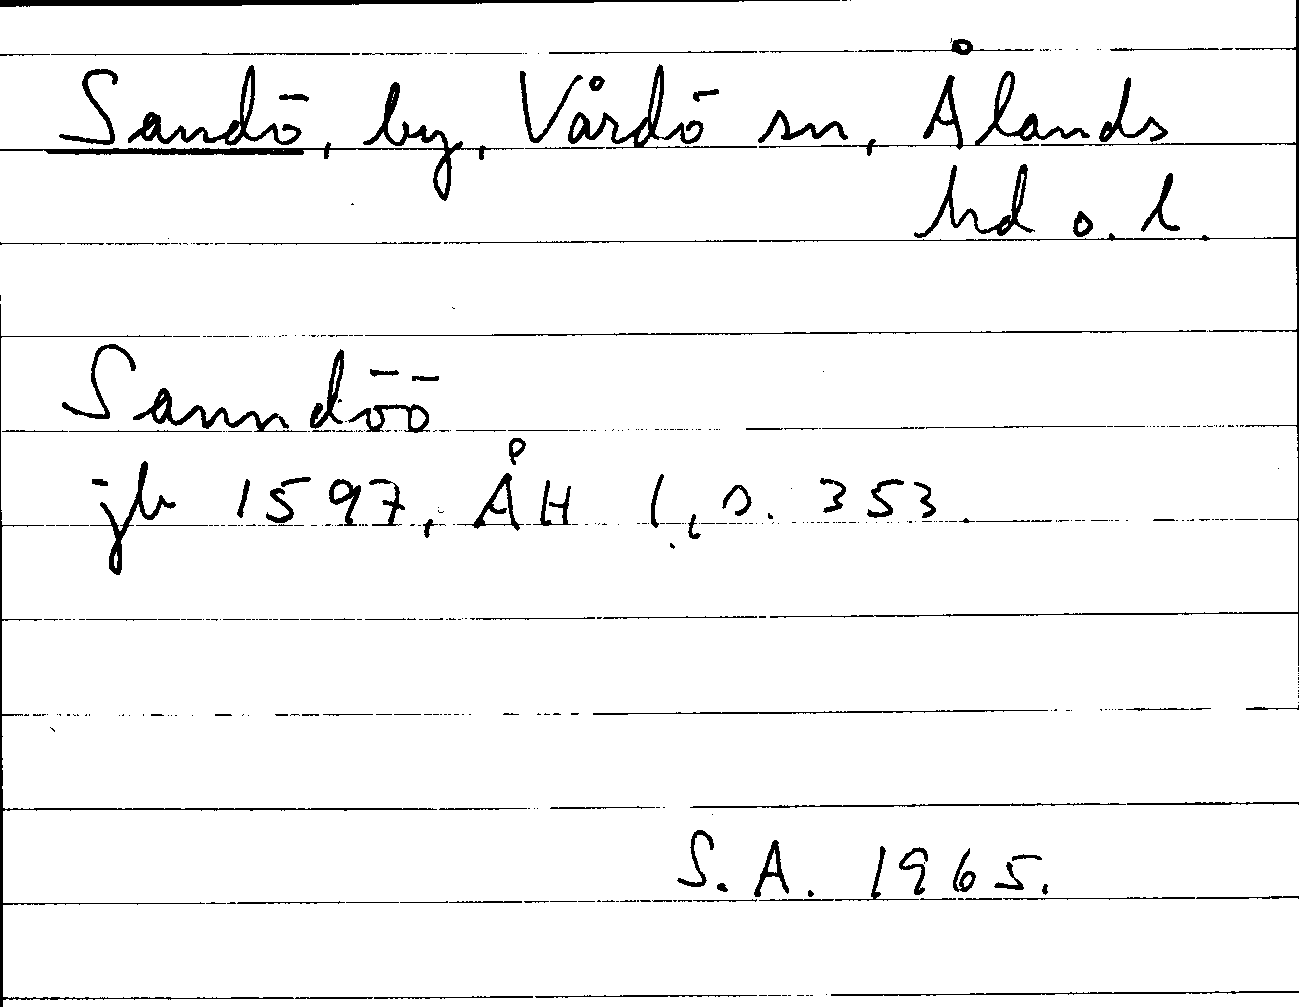 Sandö, by, Vårdö sn, Ålands
hd o. l.
Sanndöö
jb 1597, ÅH 1, s. 353.
S. A. 1965.